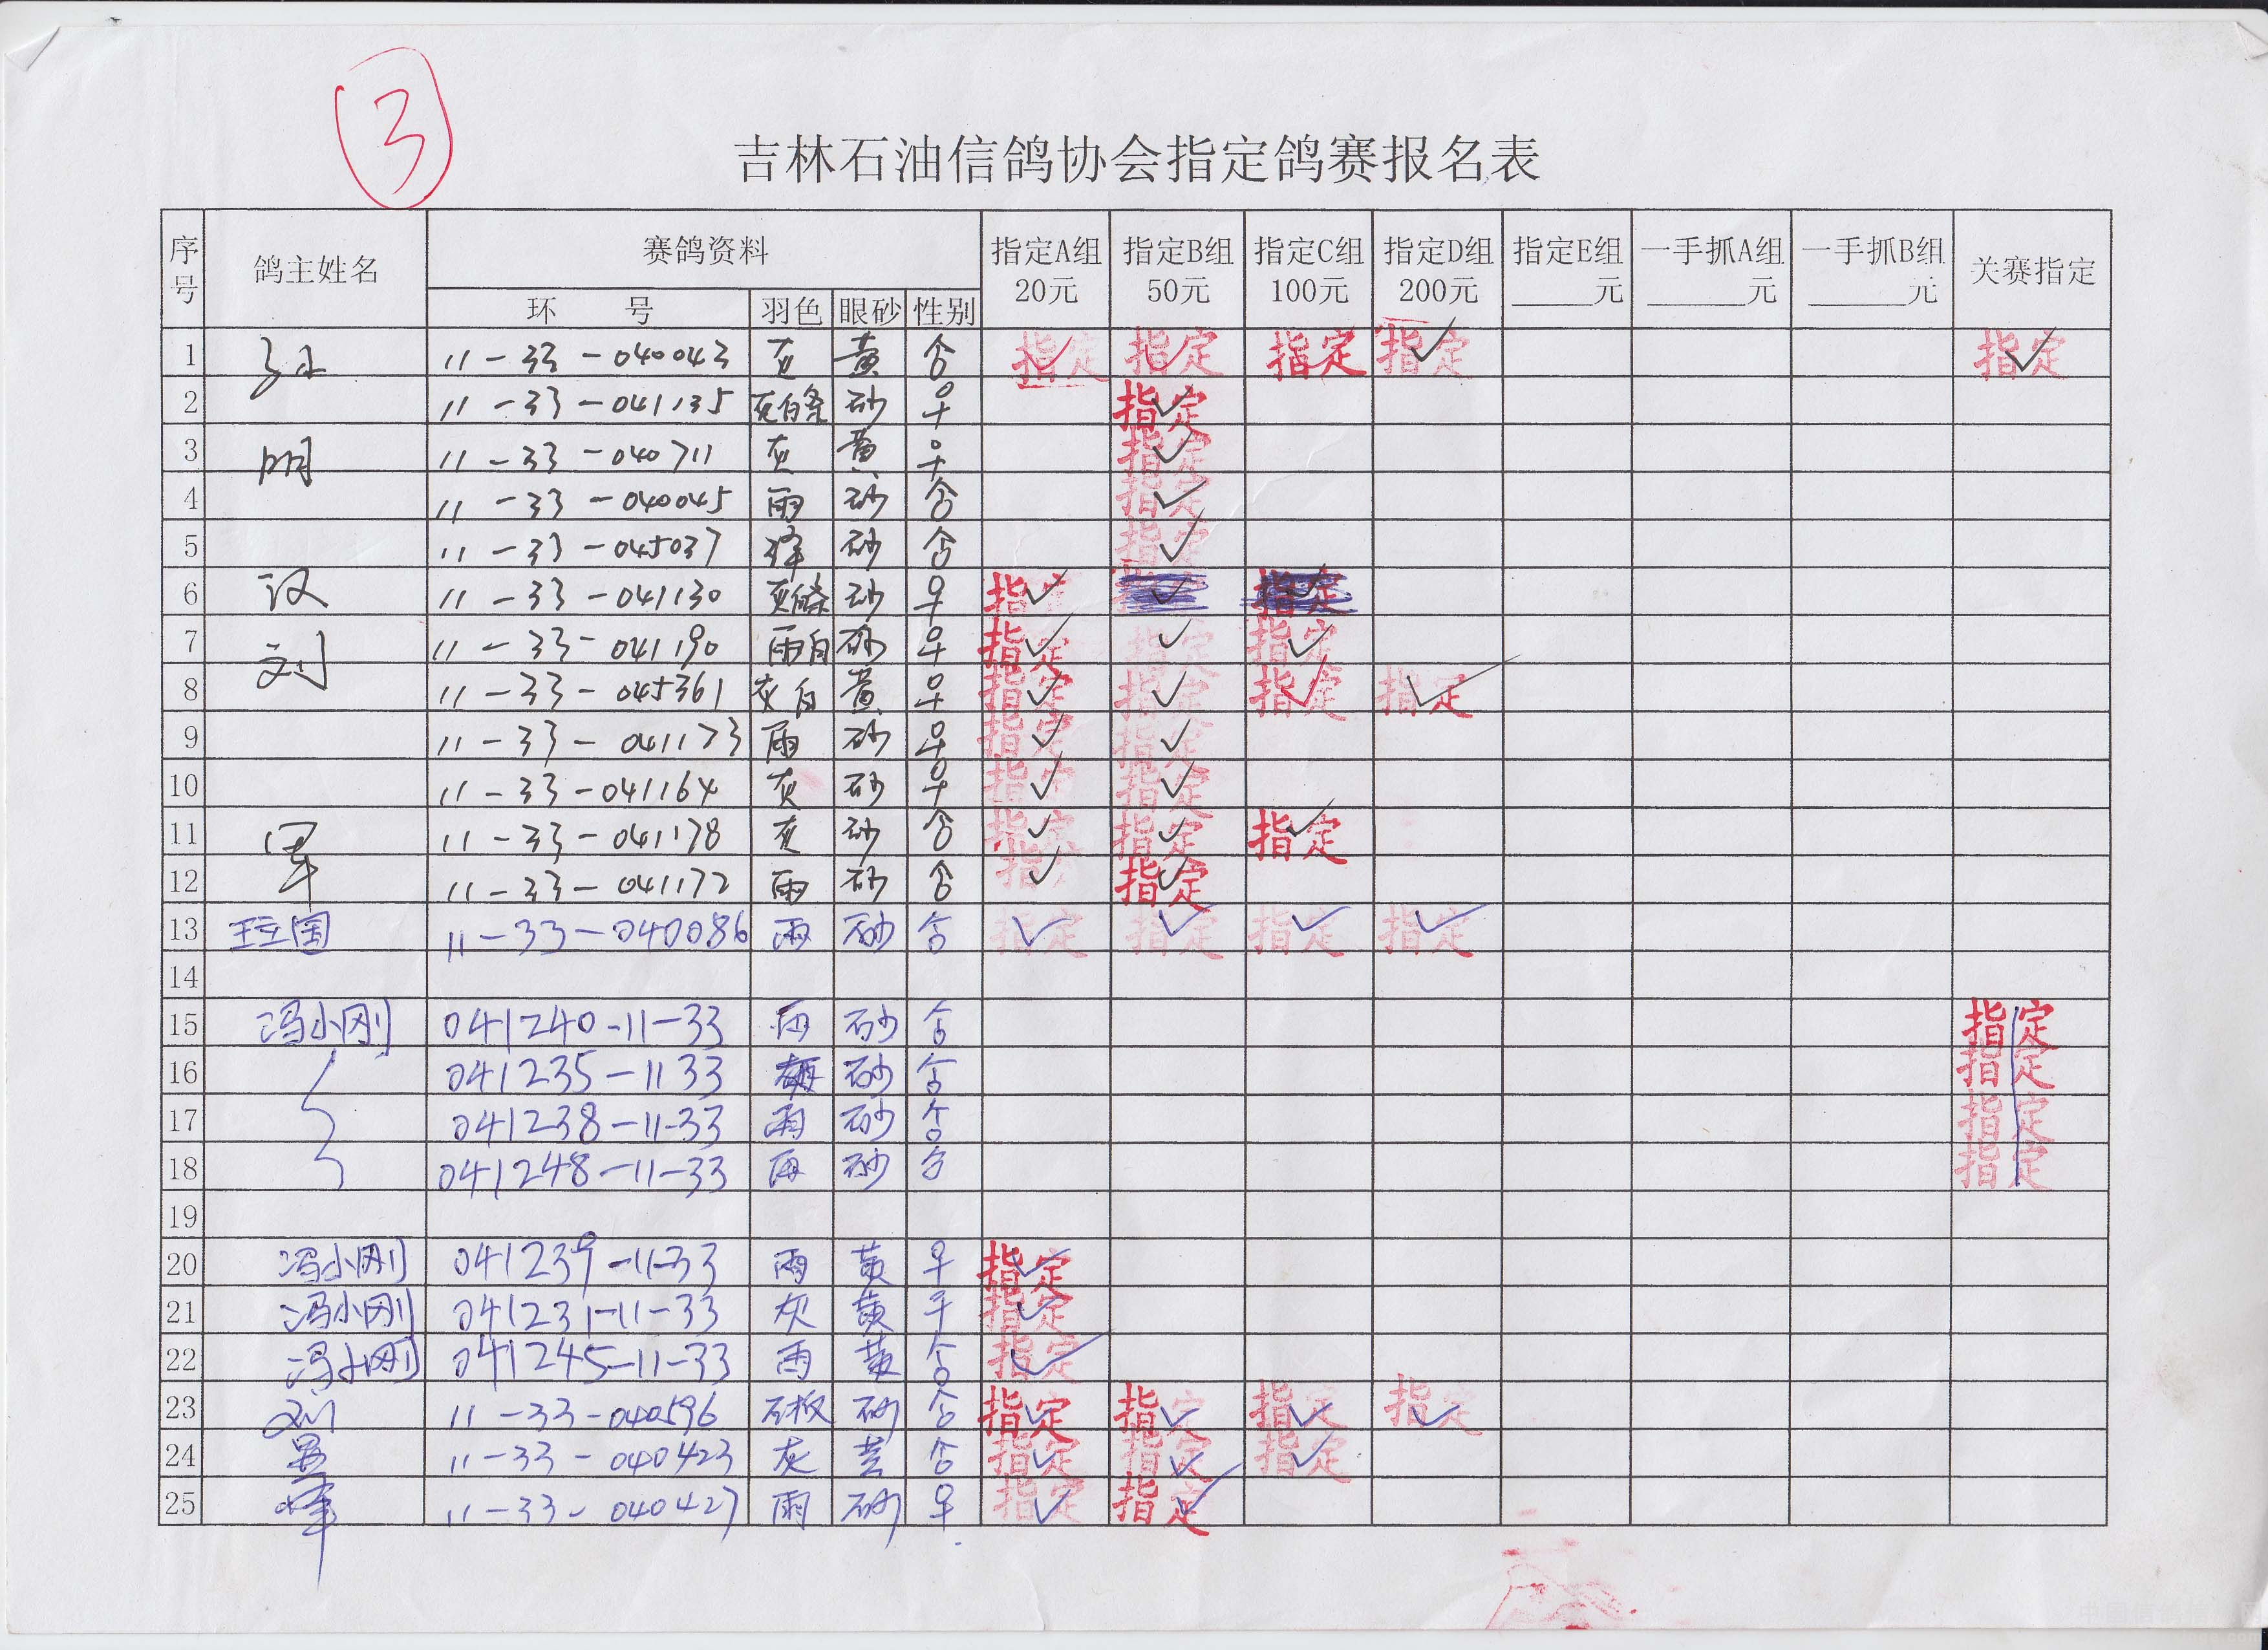 3
吉林石油信鸽协会指定鸽赛报名表
序号 鸽主姓名 赛鸽资料 指定A组 20元 指定B组 50元 指定C组 100元 指定D组 200元 指定E组 ____元 一手抓A组 ____元 一手抓B组 ____元 关赛指定
环 号 羽色 眼砂 性别
1 孙 11-33-040043 灰 黄 合 指定 指定 指定 指定 指定
2 11-33-041135 灰白条 砂 早 指定
3 明 11-33-040711 灰 黄 早 指定
4 11-33-040045 雨 砂 合 指定
5 11-33-045037 绛 砂 合 指定
6 汉 11-33-041130 砂 早 指定 指定
7 刘 11-33-041190 雨白 砂 早 指定 指定 指定
8 11-33-045361 灰白 黄 早 指定 指定 指定 指定
9 11-33-041173 雨 砂 早 指定 指定
10 11-33-041164 灰 砂 早 指定 指定
11 军 11-33-041178 灰 砂 合 指定 指定 指定
12 11-33-041172 雨 砂 合 指定 指定
13 王立国 11-33-040086 雨 砂 合 指定 指定 指定 指定
14
15 冯小刚 041240-11-33 雨 砂 合 指定
16 041235-1133 砂 合 指定
17 041238-11-33 雨 砂 合 指定
18 041248-11-33 雨 砂 合 指定
19
20 冯小刚 041239-11-33 雨 黄 早 指定
21 冯小刚 041231-11-33 灰 黄 早 指定
22 冯小刚 041245-11-33 雨 黄 合 指定
23 刘 11-33-040596 石板 砂 合 指定 指定 指定 指定
24 11-33-040423 灰 黄 合 指定 指定 指定
25 11-33-040427 雨 砂 早 指定 指定